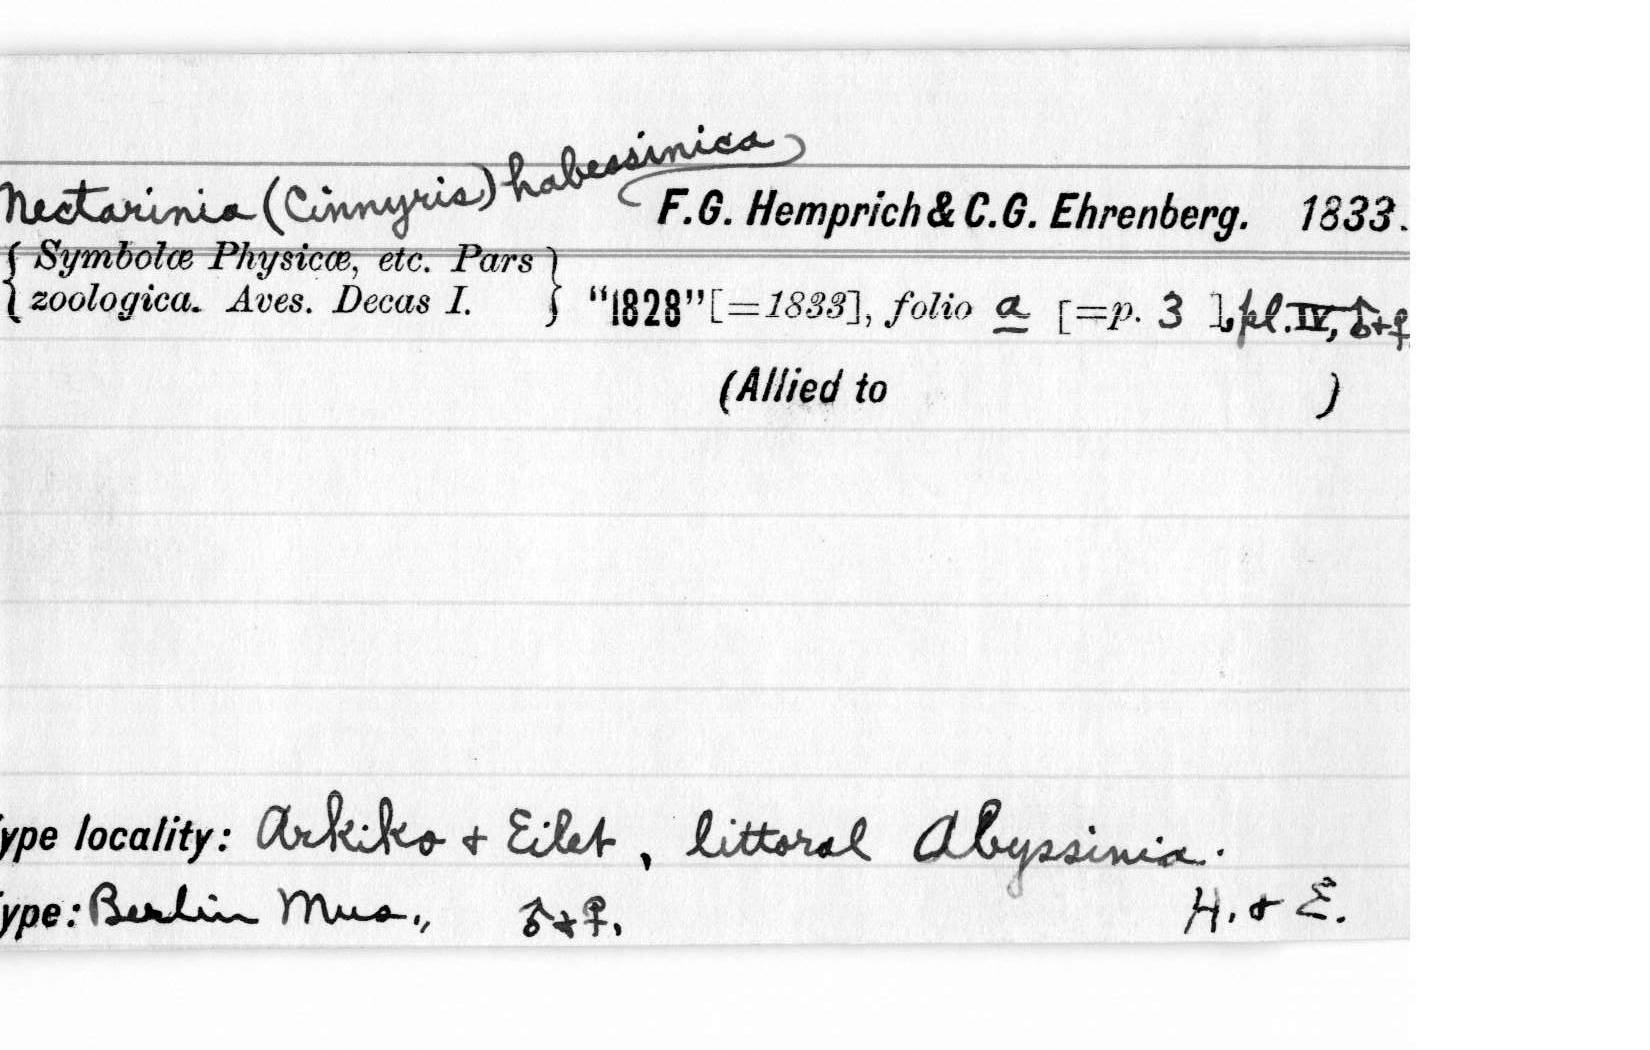 Nectarinia (Cinnyris) habessinica
F.G. Hemprich & C.G. Ehrenberg. 1833.
{ Symbolæ Physicæ, etc. Pars }
{ zoologica. Aves. Decas I. } "1828" [=1833], folio a [=p. 3 ], pl. IV, ♂+♀
(Allied to )
ype locality: Arkiko + Eilet, littoral Abyssinia.
ype: Berlin Mus., ♂+♀. H. & E.